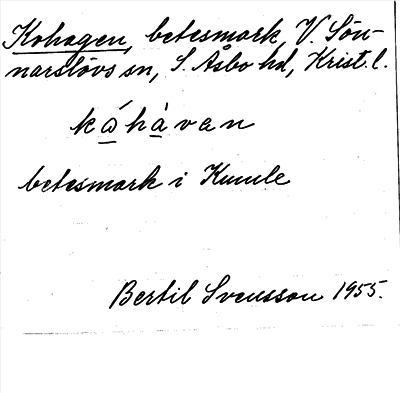 Kohagen, betesmark, V. Sön-
narslövs sn, S. Åsbo hd, Krist. l.
kóhàvan
betesmark i Kumle
Bertil Svensson 1955.